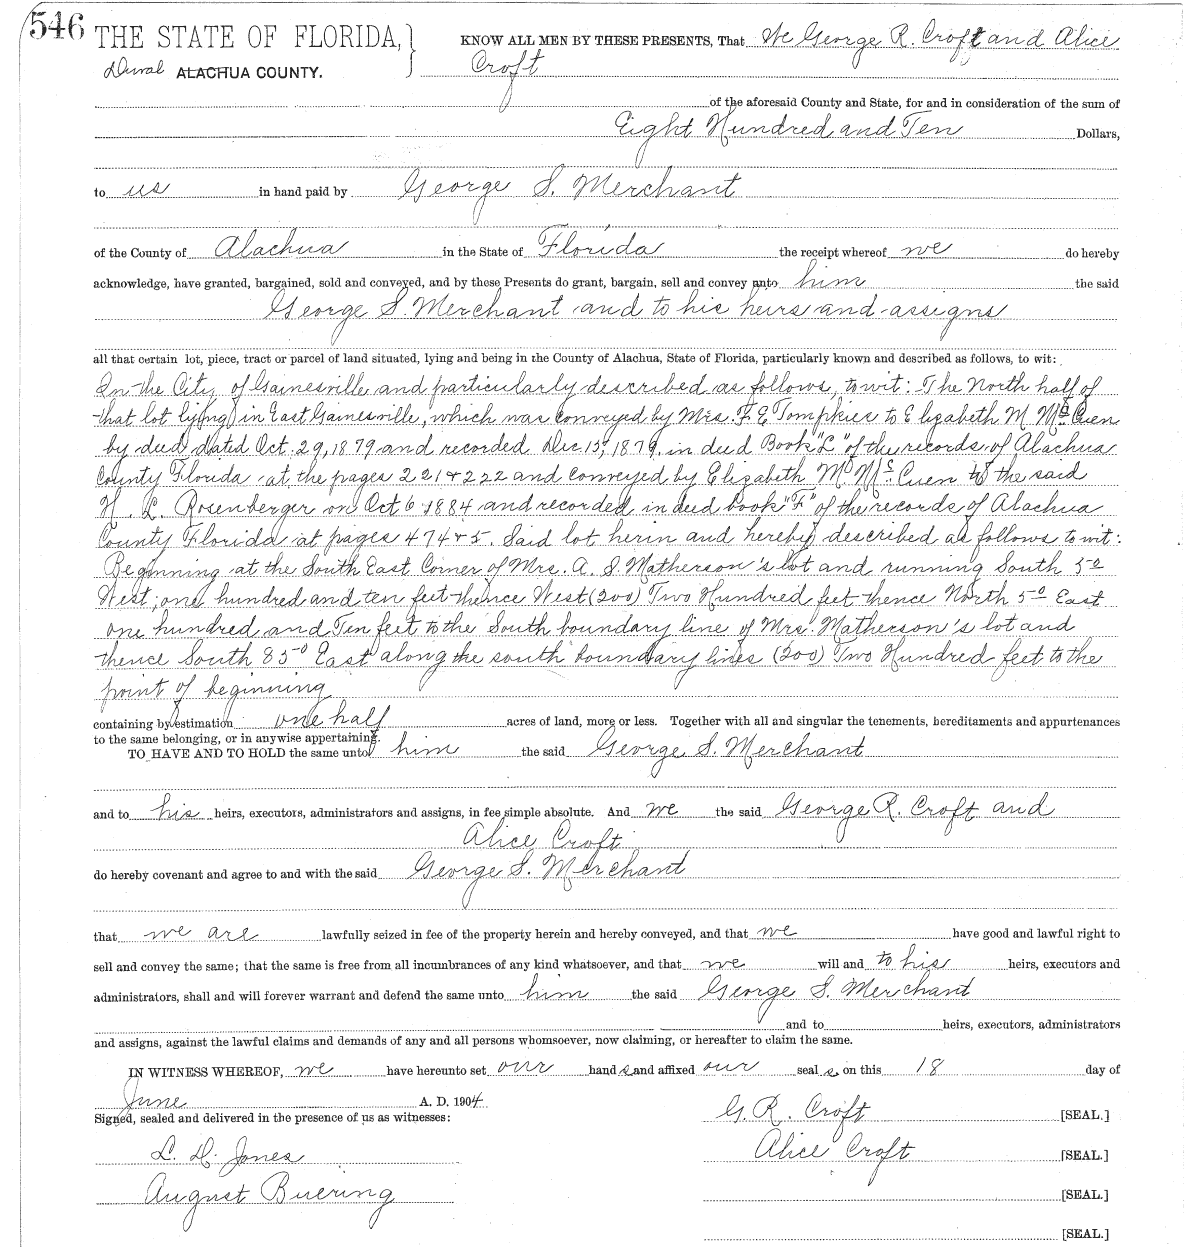 546 THE STATE OF FLORIDA, } KNOW ALL MEN BY THESE PRESENTS, That We George R. Croft and Alice
Duval ALACHUA COUNTY. Croft
of the aforesaid County and State, for and in consideration of the sum of
Eight Hundred and Ten Dollars,
to us in hand paid by George S. Merchant
of the County of Alachua in the State of Florida the receipt whereof we do hereby
acknowledge, have granted, bargained, sold and conveyed, and by these Presents do grant, bargain, sell and convey unto him the said
George S. Merchant and to his heirs and assigns
all that certain lot, piece, tract or parcel of land situated, lying and being in the County of Alachua, State of Florida, particularly known and described as follows, to wit:
In the City of Gainesville and particularly described as follows, to wit: The North half of
that lot lying in East Gainesville, which was conveyed by Mrs. F E Tompkies to Elizabeth M McCuen
by deed dated Oct. 29, 1879 and recorded Dec. 15, 1879, in deed Book "L" of the records of Alachua
County Florida at the pages 221 & 222 and conveyed by Elizabeth M McCuen to the said
H. L. Rosenberger on Oct 6 1884 and recorded in deed book "F" of the records of Alachua
County Florida at pages 474 & 5. Said lot herin and hereby described as follows to wit:
Beginning at the South East Corner of Mrs. A. S. Matherson's lot and running South 5º
West, one hundred and ten feet thence West (200) Two Hundred feet thence North 5º East
one hundred and Ten feet to the South boundary line of Mrs. Matherson's lot and
thence South 85º East along the south boundary lines (200) Two Hundred feet to the
point of beginning
containing by estimation one half acres of land, more or less. Together with all and singular the tenements, hereditaments and appurtenances
to the same belonging, or in anywise appertaining.
TO HAVE AND TO HOLD the same unto him the said George S. Merchant
and to his heirs, executors, administrators and assigns, in fee simple absolute. And we the said George R. Croft and
Alice Croft
do hereby covenant and agree to and with the said George S. Merchant
that we are lawfully seized in fee of the property herein and hereby conveyed, and that we have good and lawful right to
sell and convey the same; that the same is free from all incumbrances of any kind whatsoever, and that we will and to his heirs, executors and
administrators, shall and will forever warrant and defend the same unto him the said George S. Merchant
and to heirs, executors, administrators
and assigns, against the lawful claims and demands of any and all persons whomsoever, now claiming, or hereafter to claim the same.
IN WITNESS WHEREOF, we have hereunto set our hands and affixed our seals, on this 18 day of
June A. D. 1904
Signed, sealed and delivered in the presence of us as witnesses: G. R. Croft [SEAL.]
L. D. Jones Alice Croft [SEAL.]
August Buering [SEAL.]
[SEAL.]